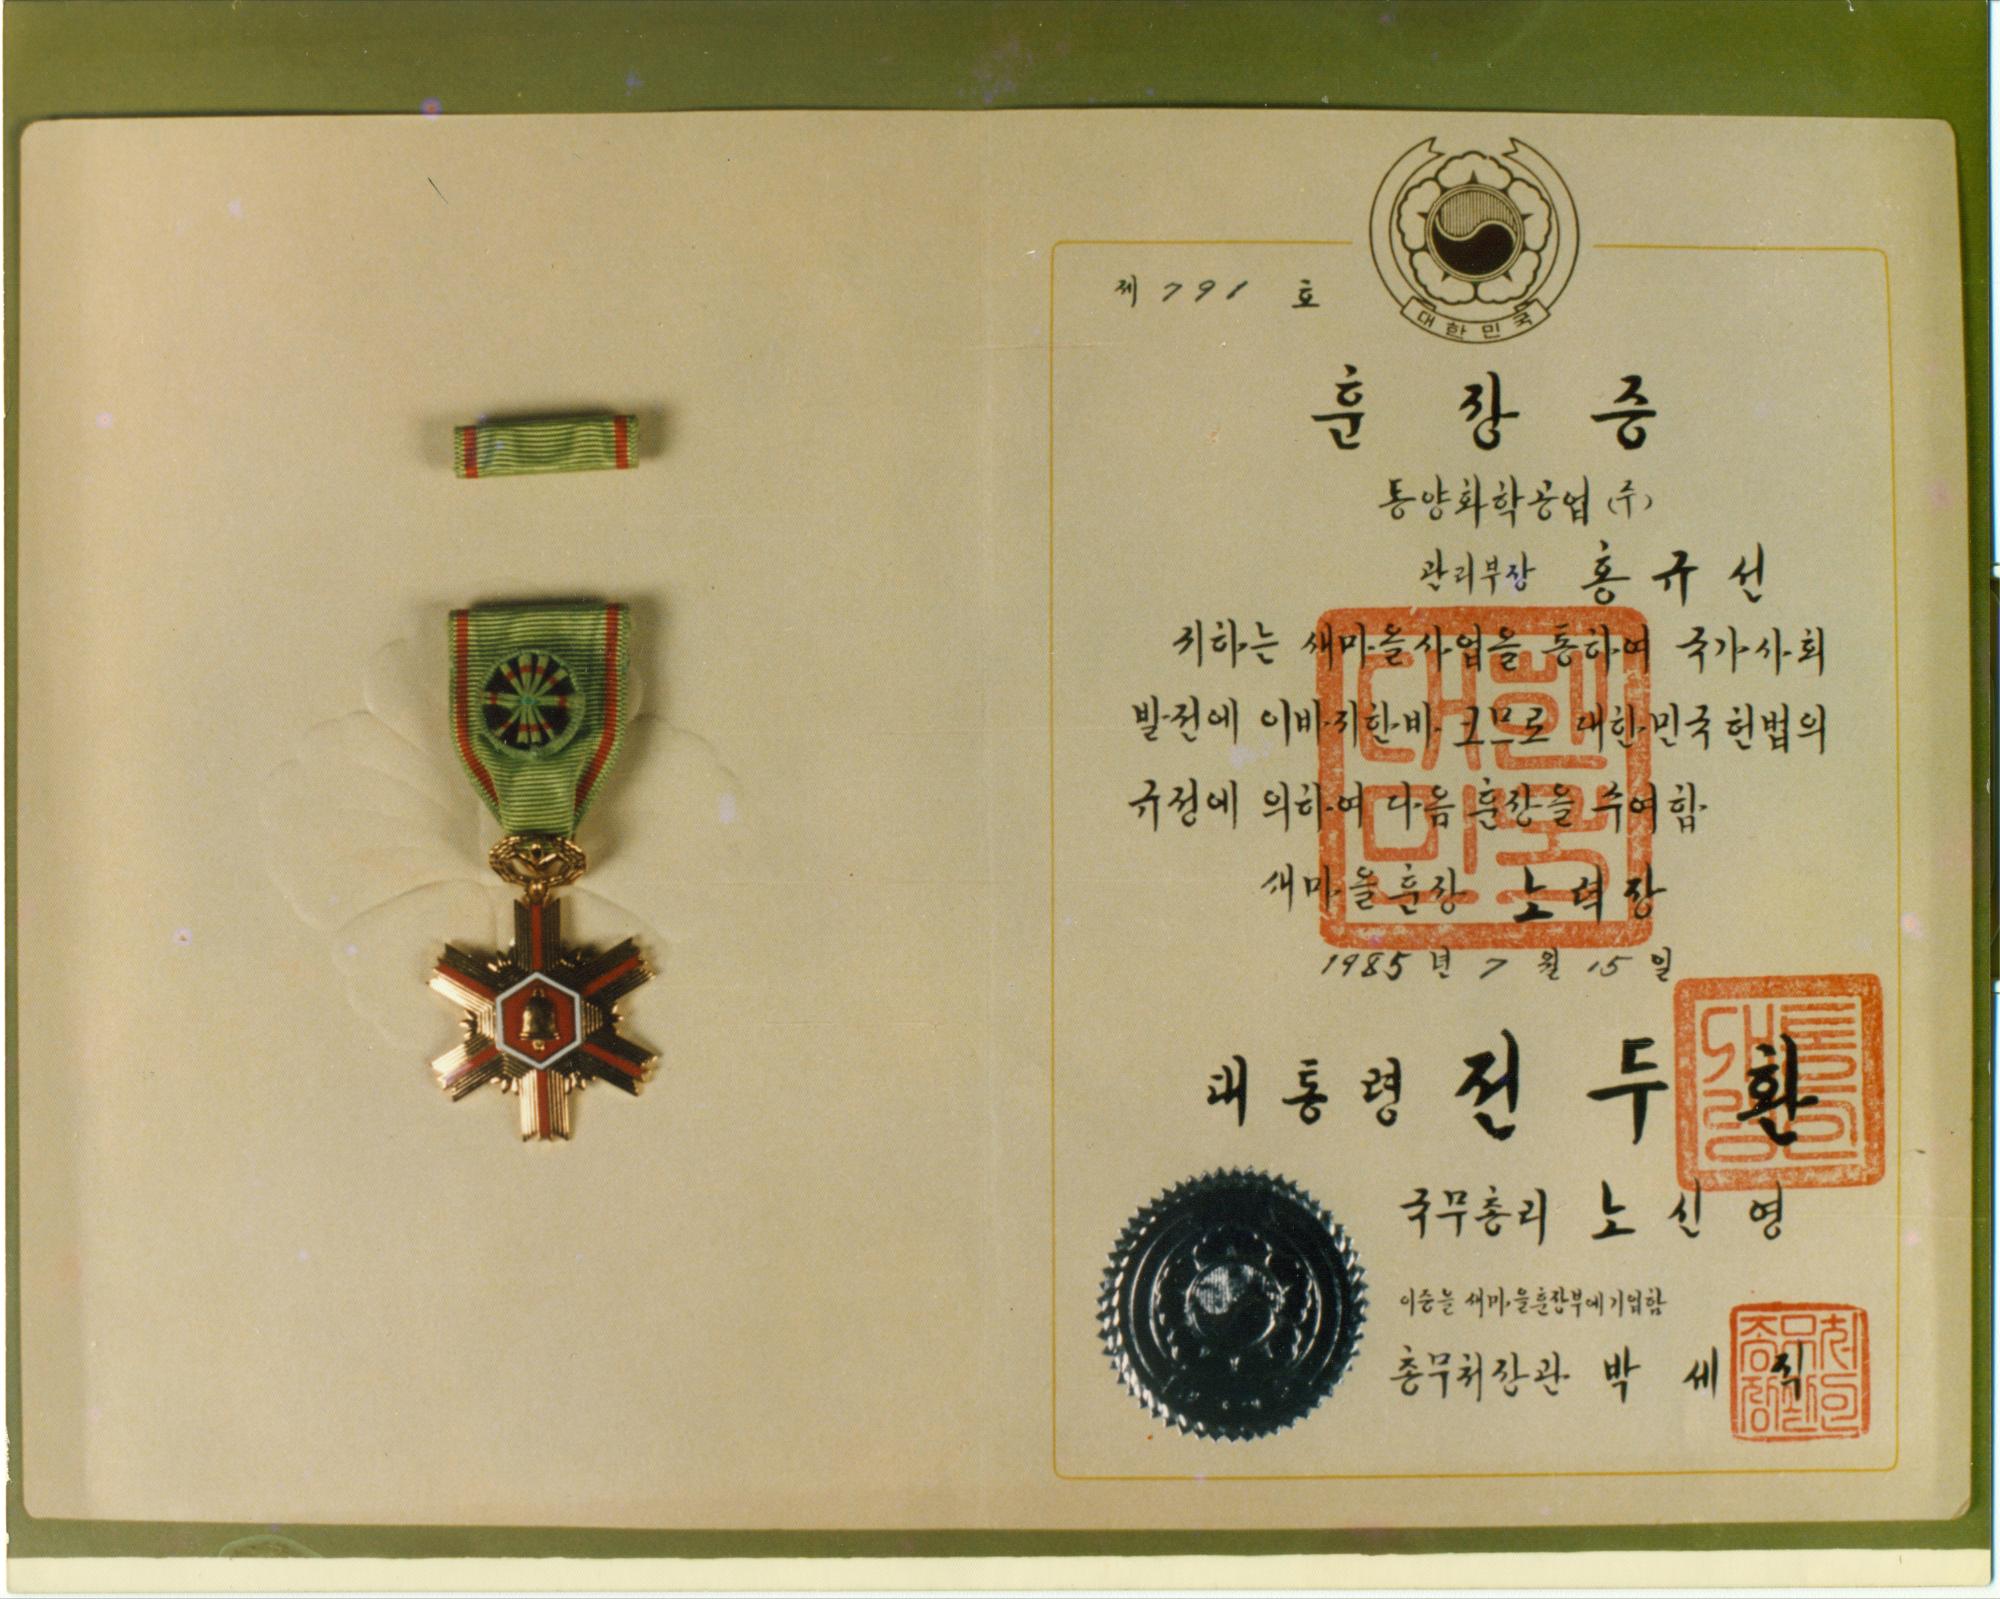 대한민국
제 791 호
훈장증
동양화학공업(주)
관리부장 홍규선
귀하는 새마을사업을 통하여 국가사회
발전에 이바지한바 크므로 대한민국헌법의
규정에 의하여 다음 훈장을 수여함
새마을훈장 노력장
1985년 7월 15일
대한민국
대통령 전두환
국무총리 노신영
이중을 새마을훈장부에기입함
총무처장관 박세직